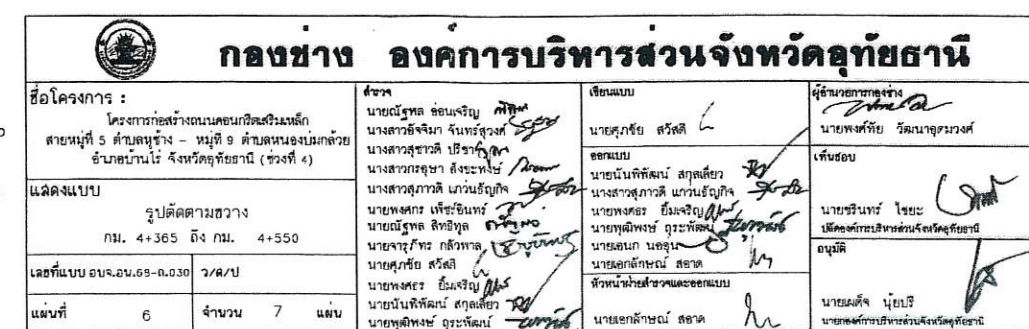 กองช่าง องค์การบริหารส่วนจังหวัดอุทัยธานี
ชื่อโครงการ :
โครงการก่อสร้างถนนคอนกรีตเสริมเหล็ก
สายหมู่ที่ 5 ตำบลหูช้าง - หมู่ที่ 9 ตำบลหนองบ่มกล้วย
อำเภอบ้านไร่ จังหวัดอุทัยธานี (ช่วงที่ 4)
แสดงแบบ
รูปตัดตามขวาง
กม. 4+365 ถึง กม. 4+550
เลขที่แบบ อบจ.อน.69-ถ.030 ว/ด/ป
แผ่นที่ 6 จำนวน 7 แผ่น
สำรวจ
นายณัฐพล อ่อนเจริญ
นางสาวอัจจิมา จันทร์สุวงศ์
นางสาวสุชาวดี
นางสาวกรอุษา
นางสาวสุภาวดี เกวันธัญกิจ
นายพงศกร เพ็ชร์อินทร์
นายณัฐพล สิทธิทูล
นายจารุภัทร กล้วพาล
นายศุภชัย สวัสดิ์
นายพงศธร ยิ้มเจริญ
นายนันทิพัฒน์ สกุลเลี่ยว
นายพุฒิพงษ์ ถุระพัฒน์
เขียนแบบ
นายศุภชัย สวัสดิ์
ออกแบบ
นายนันทิพัฒน์ สกุลเลี่ยว
นางสาวสุภาวดี เกวันธัญกิจ
นายพงศธร ยิ้มเจริญ
นายพุฒิพงษ์ ถุระพัฒน์
นายเอนก นออุ่น
นายเอกลักษณ์ สอาด
หัวหน้าฝ่ายสำรวจและออกแบบ
นายเอกลักษณ์ สอาด
ผู้อำนวยการกองช่าง
นายพงศ์ทัย วัฒนาอุดมวงศ์
เห็นชอบ
นายชรินทร์ ไชยะ
ปลัดองค์การบริหารส่วนจังหวัดอุทัยธานี
อนุมัติ
นายเผด็จ นุ้ยปรี
นายกองค์การบริหารส่วนจังหวัดอุทัยธานี